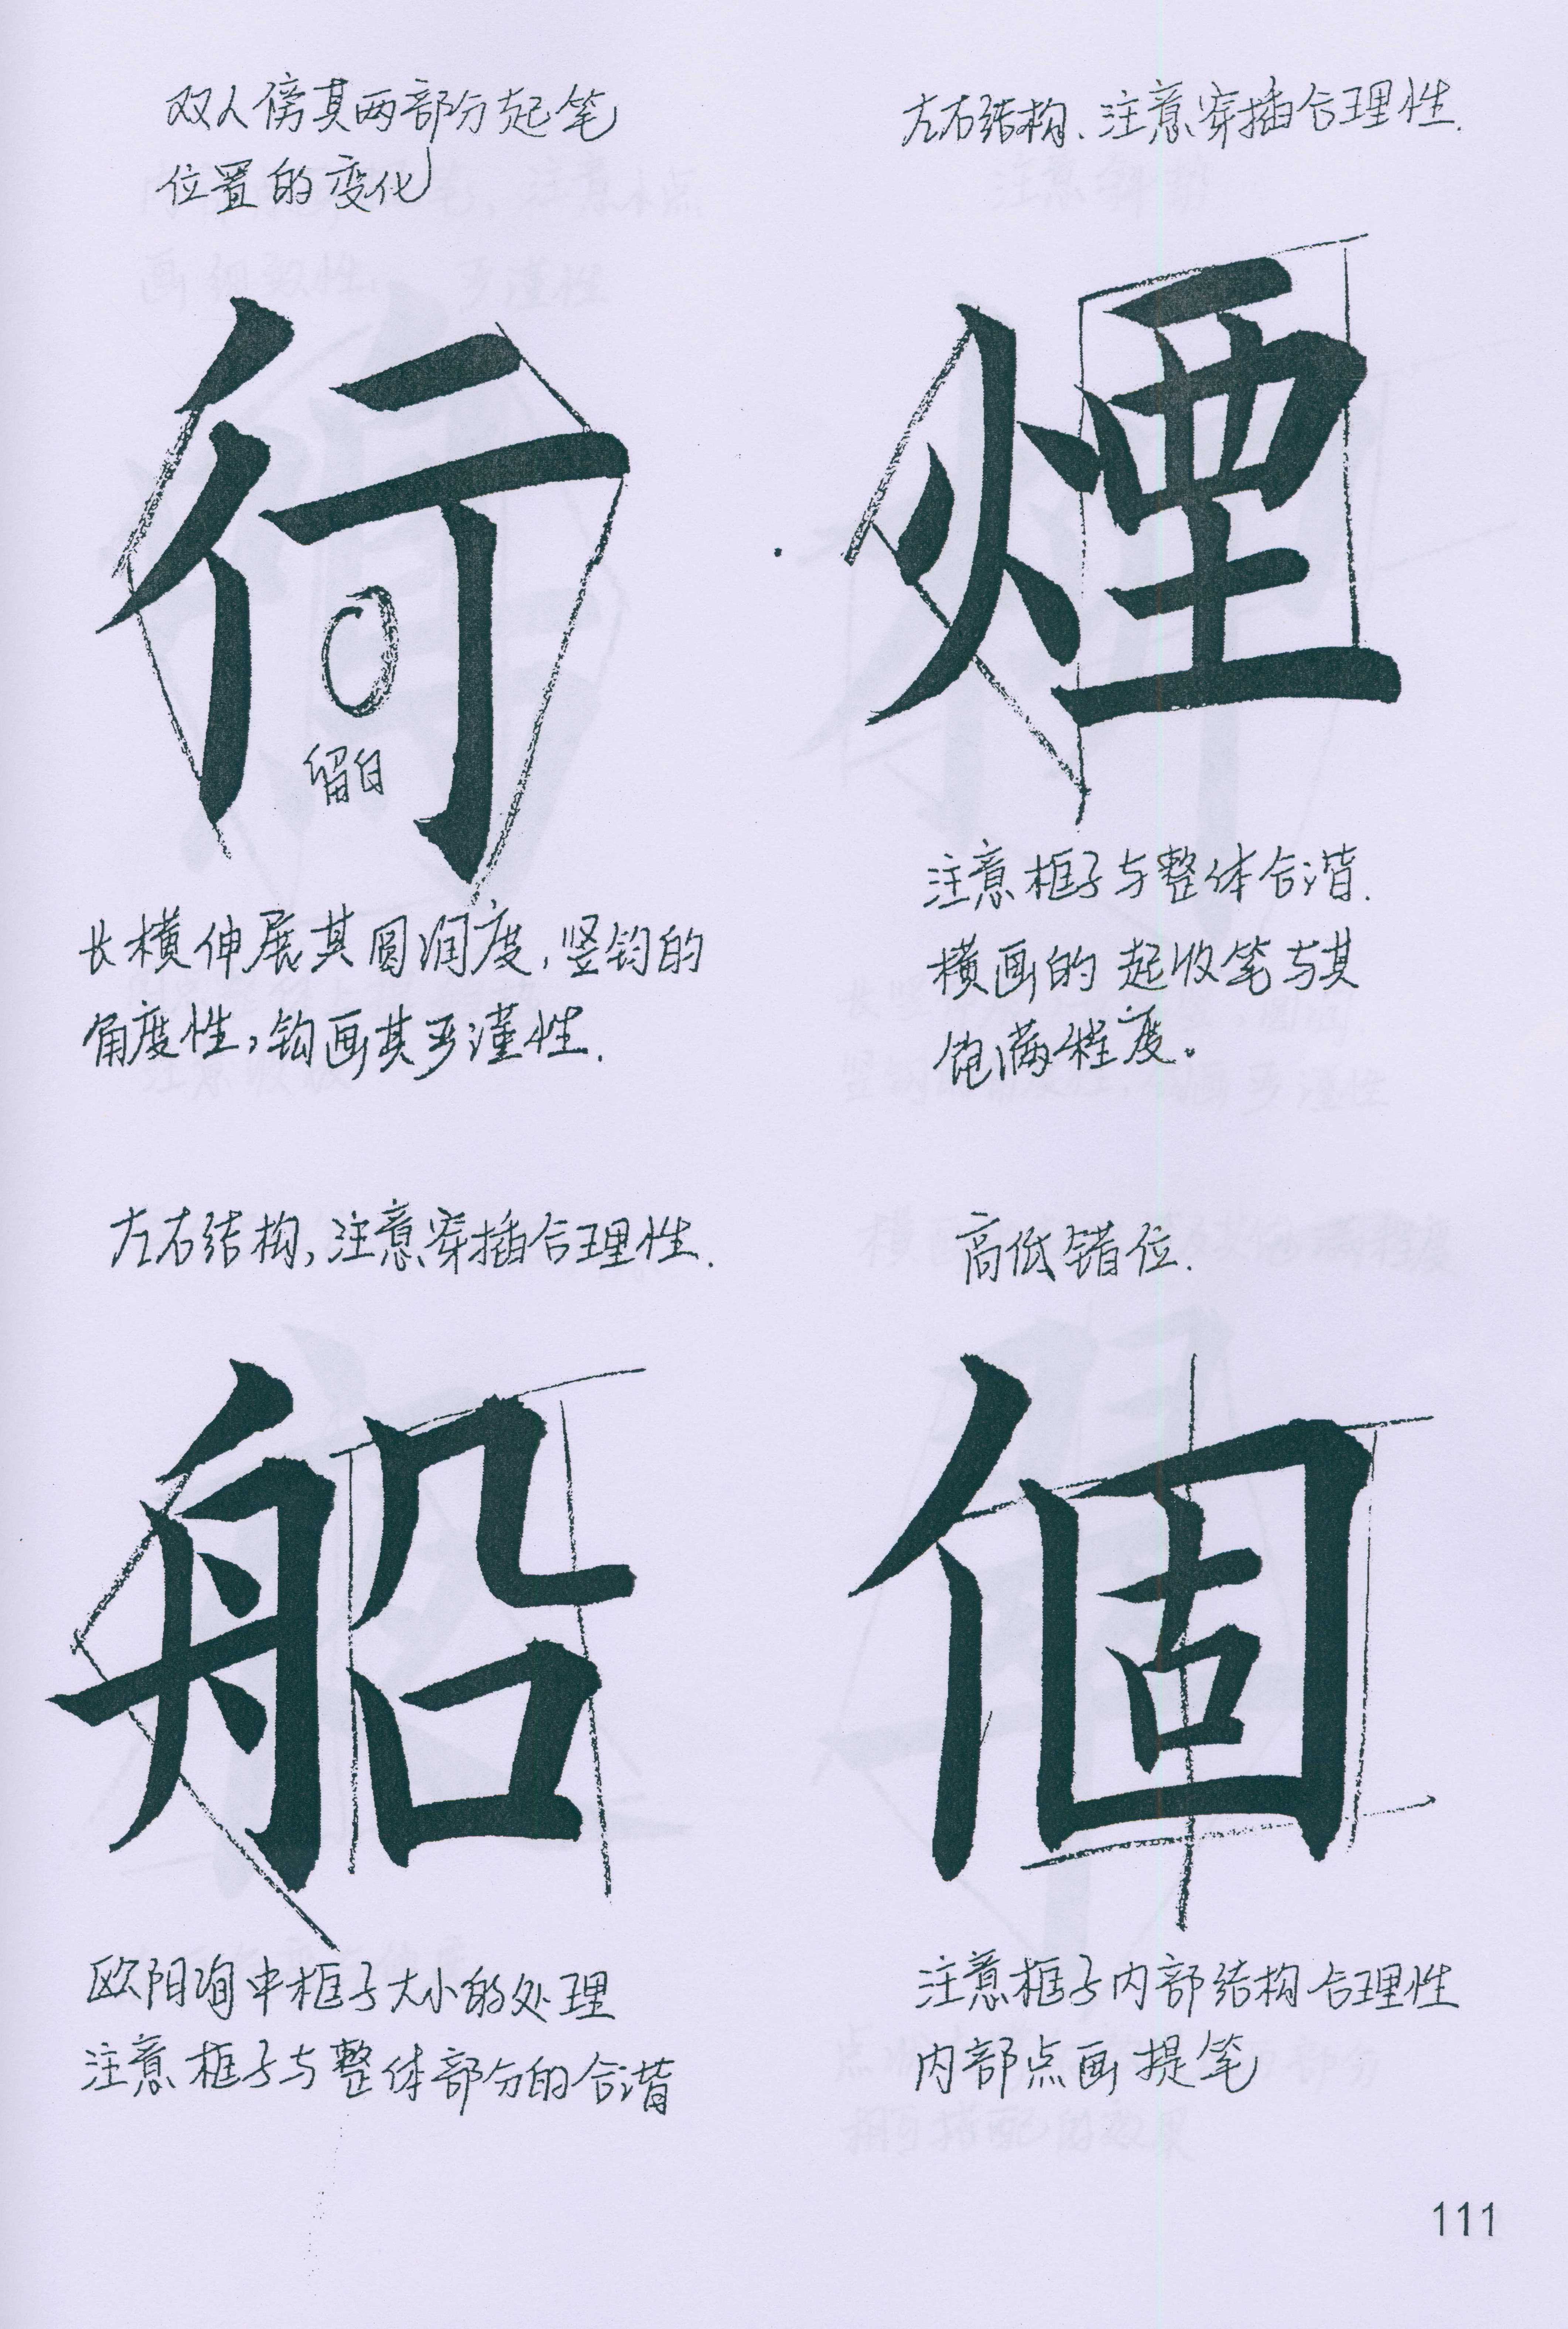 双人傍其两部分起笔
位置的变化
行
留白
长横伸展其圆润度,竖钩的
角度性,钩画其严谨性.
左右结构、注意穿插合理性.
煙
注意框子与整体合谐.
横画的起收笔与其
饱满程度。
左右结构,注意穿插合理性.
船
欧阳询中框子大小的处理
注意框子与整体部分的合谐
高低错位.
個
注意框子内部结构合理性
内部点画提笔
111